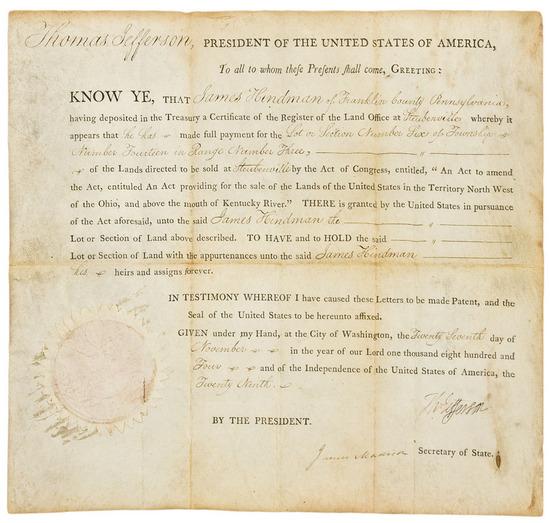 Thomas Jefferson, PRESIDENT OF THE UNITED STATES OF AMERICA,
To all to whom these Presents shall come, GREETING:
KNOW YE, THAT James Hindman of Franklin County Pennsylvania,
having deposited in the Treasury a Certificate of the Register of the Land Office at Steubenville whereby it
appears that he has made full payment for the Lot or Section Number Six of Township
Number Fourteen in Range Number Three, — " — " —
of the Lands directed to be sold at Steubenville by the Act of Congress, entitled, “ An Act to amend
the Act, entituled An Act providing for the sale of the Lands of the United States in the Territory North West
of the Ohio, and above the mouth of Kentucky River.” THERE is granted by the United States in pursuance
of the Act aforesaid, unto the said James Hindman the — " —
Lot or Section of Land above described. TO HAVE and to HOLD the said — " — " —
Lot or Section of Land with the appurtenances unto the said James Hindman —
his heirs and assigns forever.
IN TESTIMONY WHEREOF I have caused these Letters to be made Patent, and the
Seal of the United States to be hereunto affixed.
GIVEN under my Hand, at the City of Washington, the Twenty Seventh day of
November in the year of our Lord one thousand eight hundred and
Four and of the Independence of the United States of America, the
Twenty Ninth.
Th Jefferson
BY THE PRESIDENT.
James Madison Secretary of State.